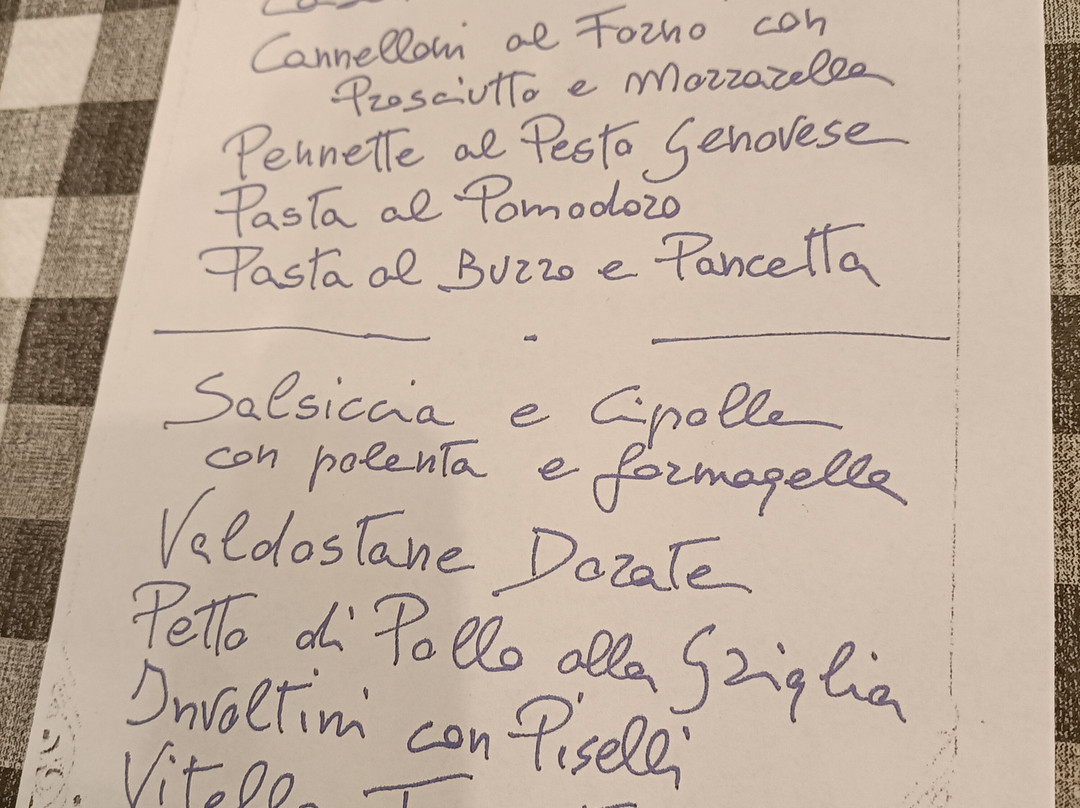 Cannelloni al Forno con
Prosciutto e Mozzarella
Pennette al Pesto Genovese
Pasta al Pomodoro
Pasta al Burro e Pancetta
Salsiccia e Cipolle
con polenta e formagella
Valdostane Dorate
Petto di Pollo alla Griglia
Involtini con Piselli
Vitello